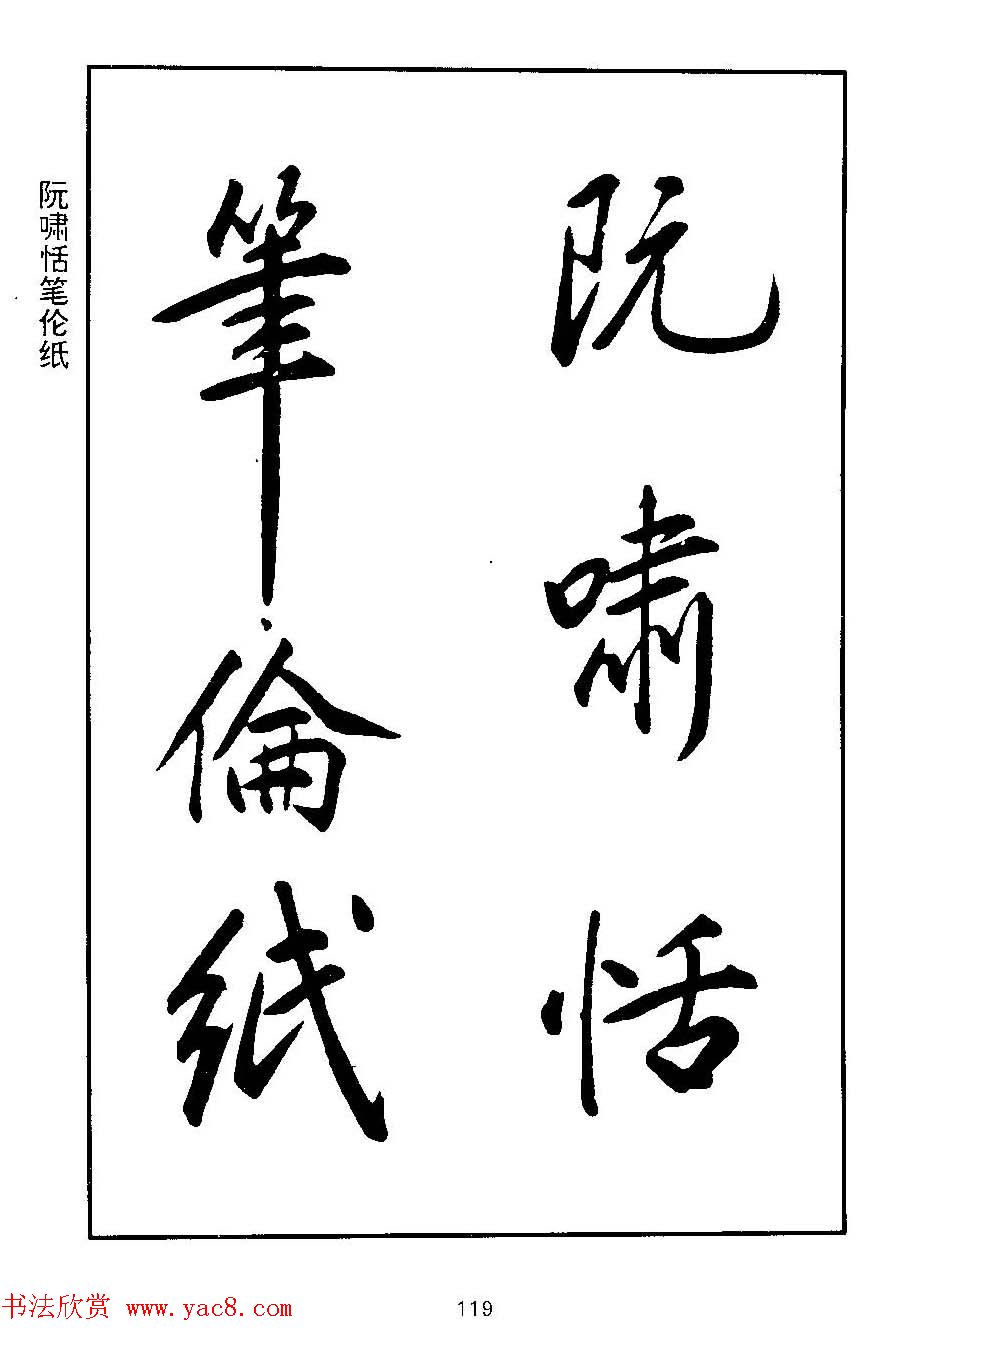 阮嘯恬
筆倫紙
阮啸恬笔伦纸
书法欣赏 www.yac8.com
119